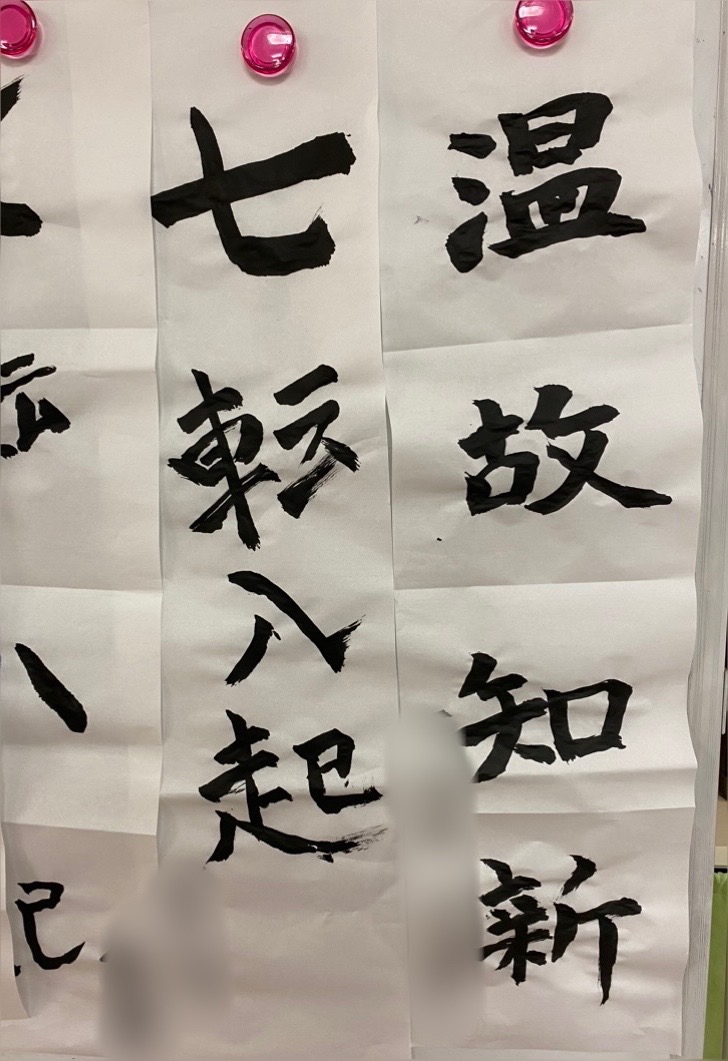 温故知新
七転入起